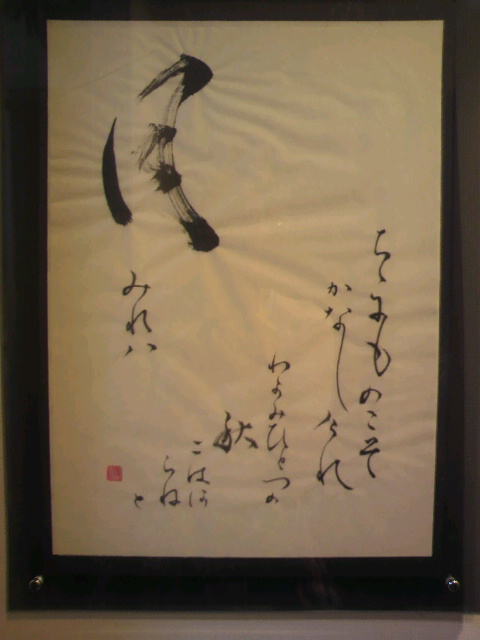 月
みれハ
ちゝにものこそ
かなしけれ
わかみひとつの
秋
にはあ
らね
と